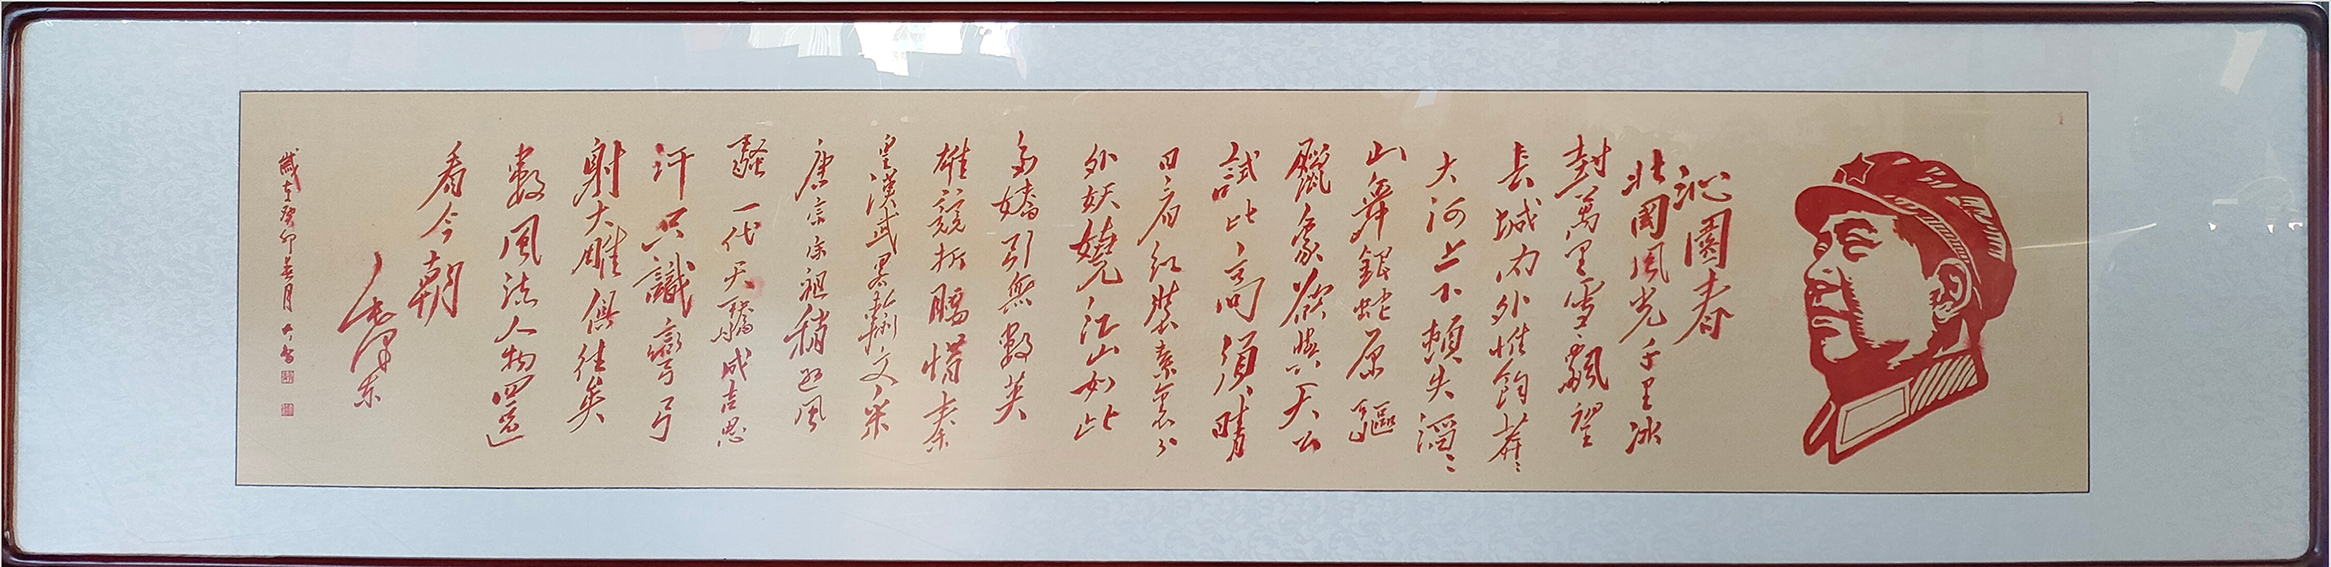 沁園春
北國風光千里冰
封萬里雪飄望
長城內外惟餘莽〻
大河上下頓失滔〻
山舞銀蛇原驅
臘象欲與天公
試比高須晴
日看紅裝素裹分
外妖嬈江山如此
多嬌引無數英
雄競折腰惜秦
皇漢武略輸文采
唐宗宋祖稍遜風
騷一代天驕成吉思
汗只識彎弓
射大雕俱往矣
數風流人物還
看今朝
毛澤東
歲在癸卯春月